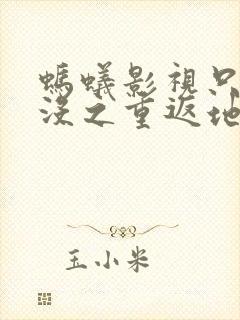 螞蟻影視只
沒之重返地
玉小米